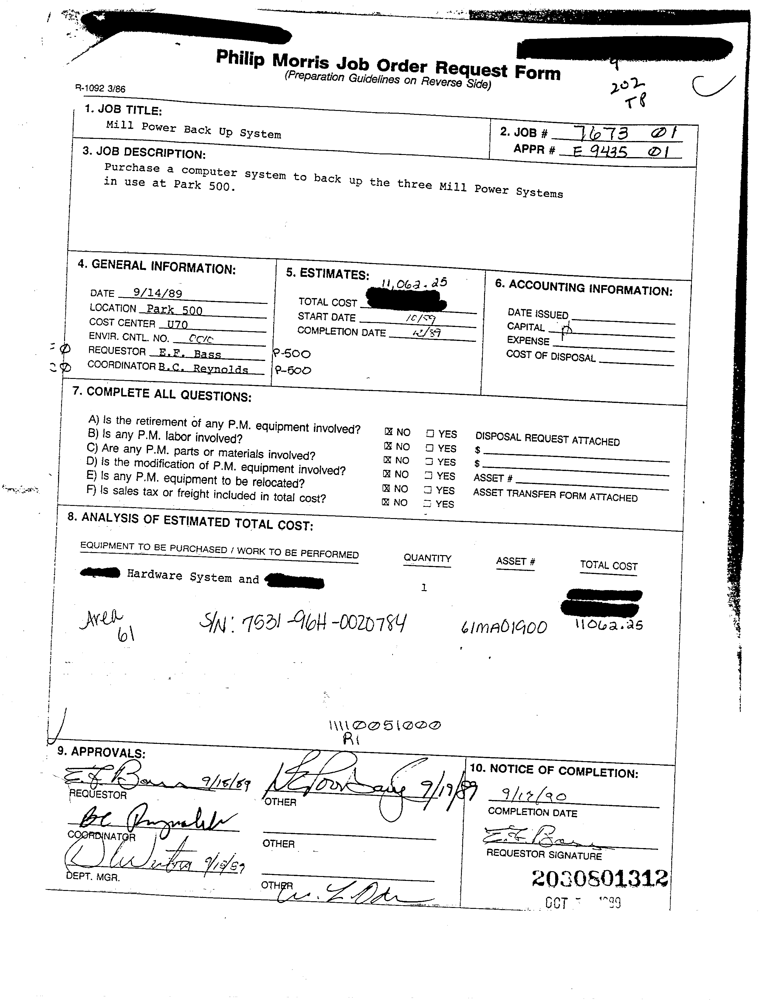 Philip Morris Job Order Request Form
(Preparation Guidelines on Reverse Side)
R-1092 3/86
202
T8
1. JOB TITLE:
Mill Power Back Up System
2. JOB # 7673 01
APPR # E 9435 01
3. JOB DESCRIPTION:
Purchase a computer system to back up the three Mill Power Systems
in use at Park 500.
4. GENERAL INFORMATION:
DATE 9/14/89
LOCATION Park 500
COST CENTER U70
ENVIR. CNTL. NO.
REQUESTOR E.F. Bass P-500
COORDINATOR B.C. Reynolds P-500
5. ESTIMATES:
11,062.25
TOTAL COST
START DATE 10/89
COMPLETION DATE 12/89
6. ACCOUNTING INFORMATION:
DATE ISSUED
CAPITAL
EXPENSE
COST OF DISPOSAL
7. COMPLETE ALL QUESTIONS:
A) Is the retirement of any P.M. equipment involved? ☒ NO ☐ YES DISPOSAL REQUEST ATTACHED
B) Is any P.M. labor involved? ☒ NO ☐ YES $
C) Are any P.M. parts or materials involved? ☒ NO ☐ YES $
D) Is the modification of P.M. equipment involved? ☒ NO ☐ YES ASSET #
E) Is any P.M. equipment to be relocated? ☒ NO ☐ YES ASSET TRANSFER FORM ATTACHED
F) Is sales tax or freight included in total cost? ☒ NO ☐ YES
8. ANALYSIS OF ESTIMATED TOTAL COST:
EQUIPMENT TO BE PURCHASED / WORK TO BE PERFORMED QUANTITY ASSET # TOTAL COST
Hardware System and 1
Area 61 S/N: 7531-96H-0020784 61MA01900 11062.25
11110051000
R1
9. APPROVALS:
E.F. Bass 9/15/89
REQUESTOR
BC Reynolds
COORDINATOR
9/18/89
DEPT. MGR.
9/19/89
OTHER
OTHER
OTHER
10. NOTICE OF COMPLETION:
9/17/90
COMPLETION DATE
E.F. Bass
REQUESTOR SIGNATURE
2030801312
OCT